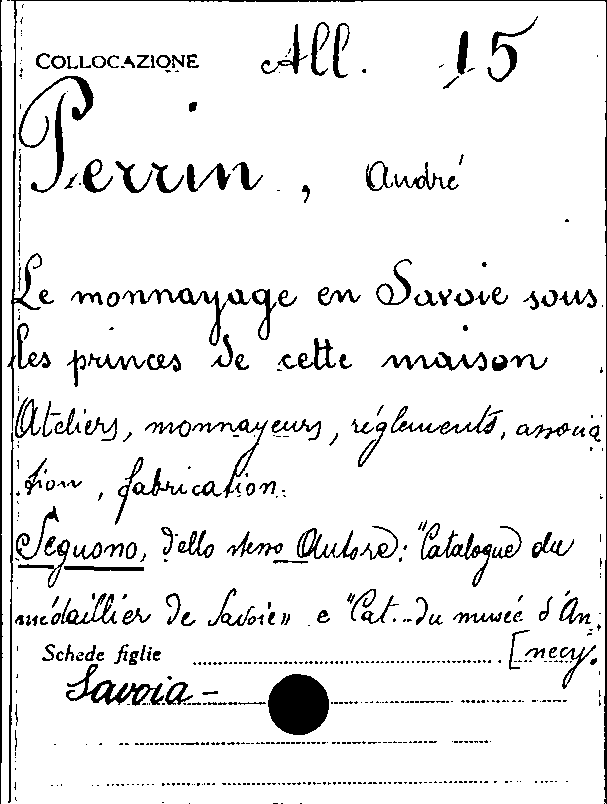 COLLOCAZIONE All. 15
Perrin, André
Le monnayage en Savoie sous
les princes de cette maison
Ateliers, monnayeurs, réglements, associa
tion, fabrication.
Seguono, dello stesso Autore: "Catalogue du
médaillier de Savoie" e "Cat. du musée d'An.
Schede figlie [necy.
Savoia -